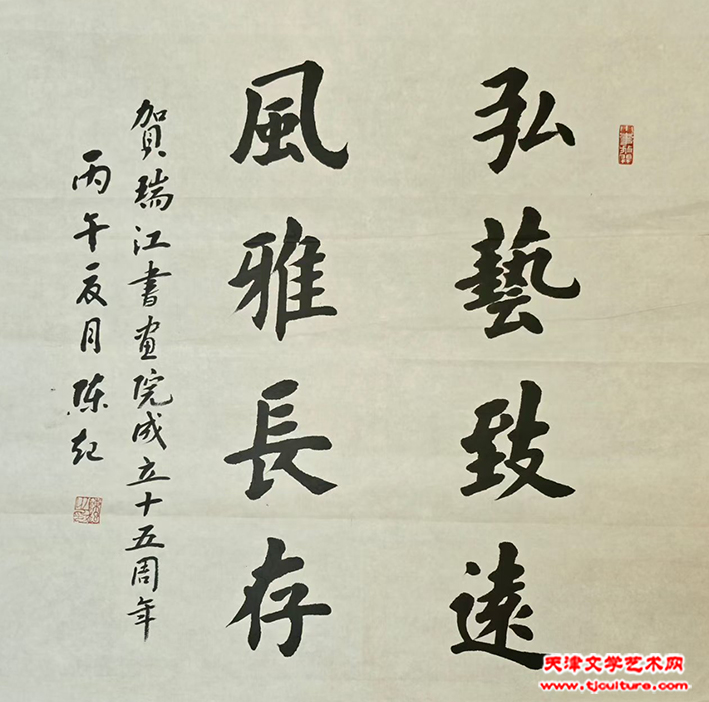 弘藝致遠
風雅長存
賀瑞江書画院成立十五周年
丙午辰月陈起
天津文学艺术网
www.tjculture.com